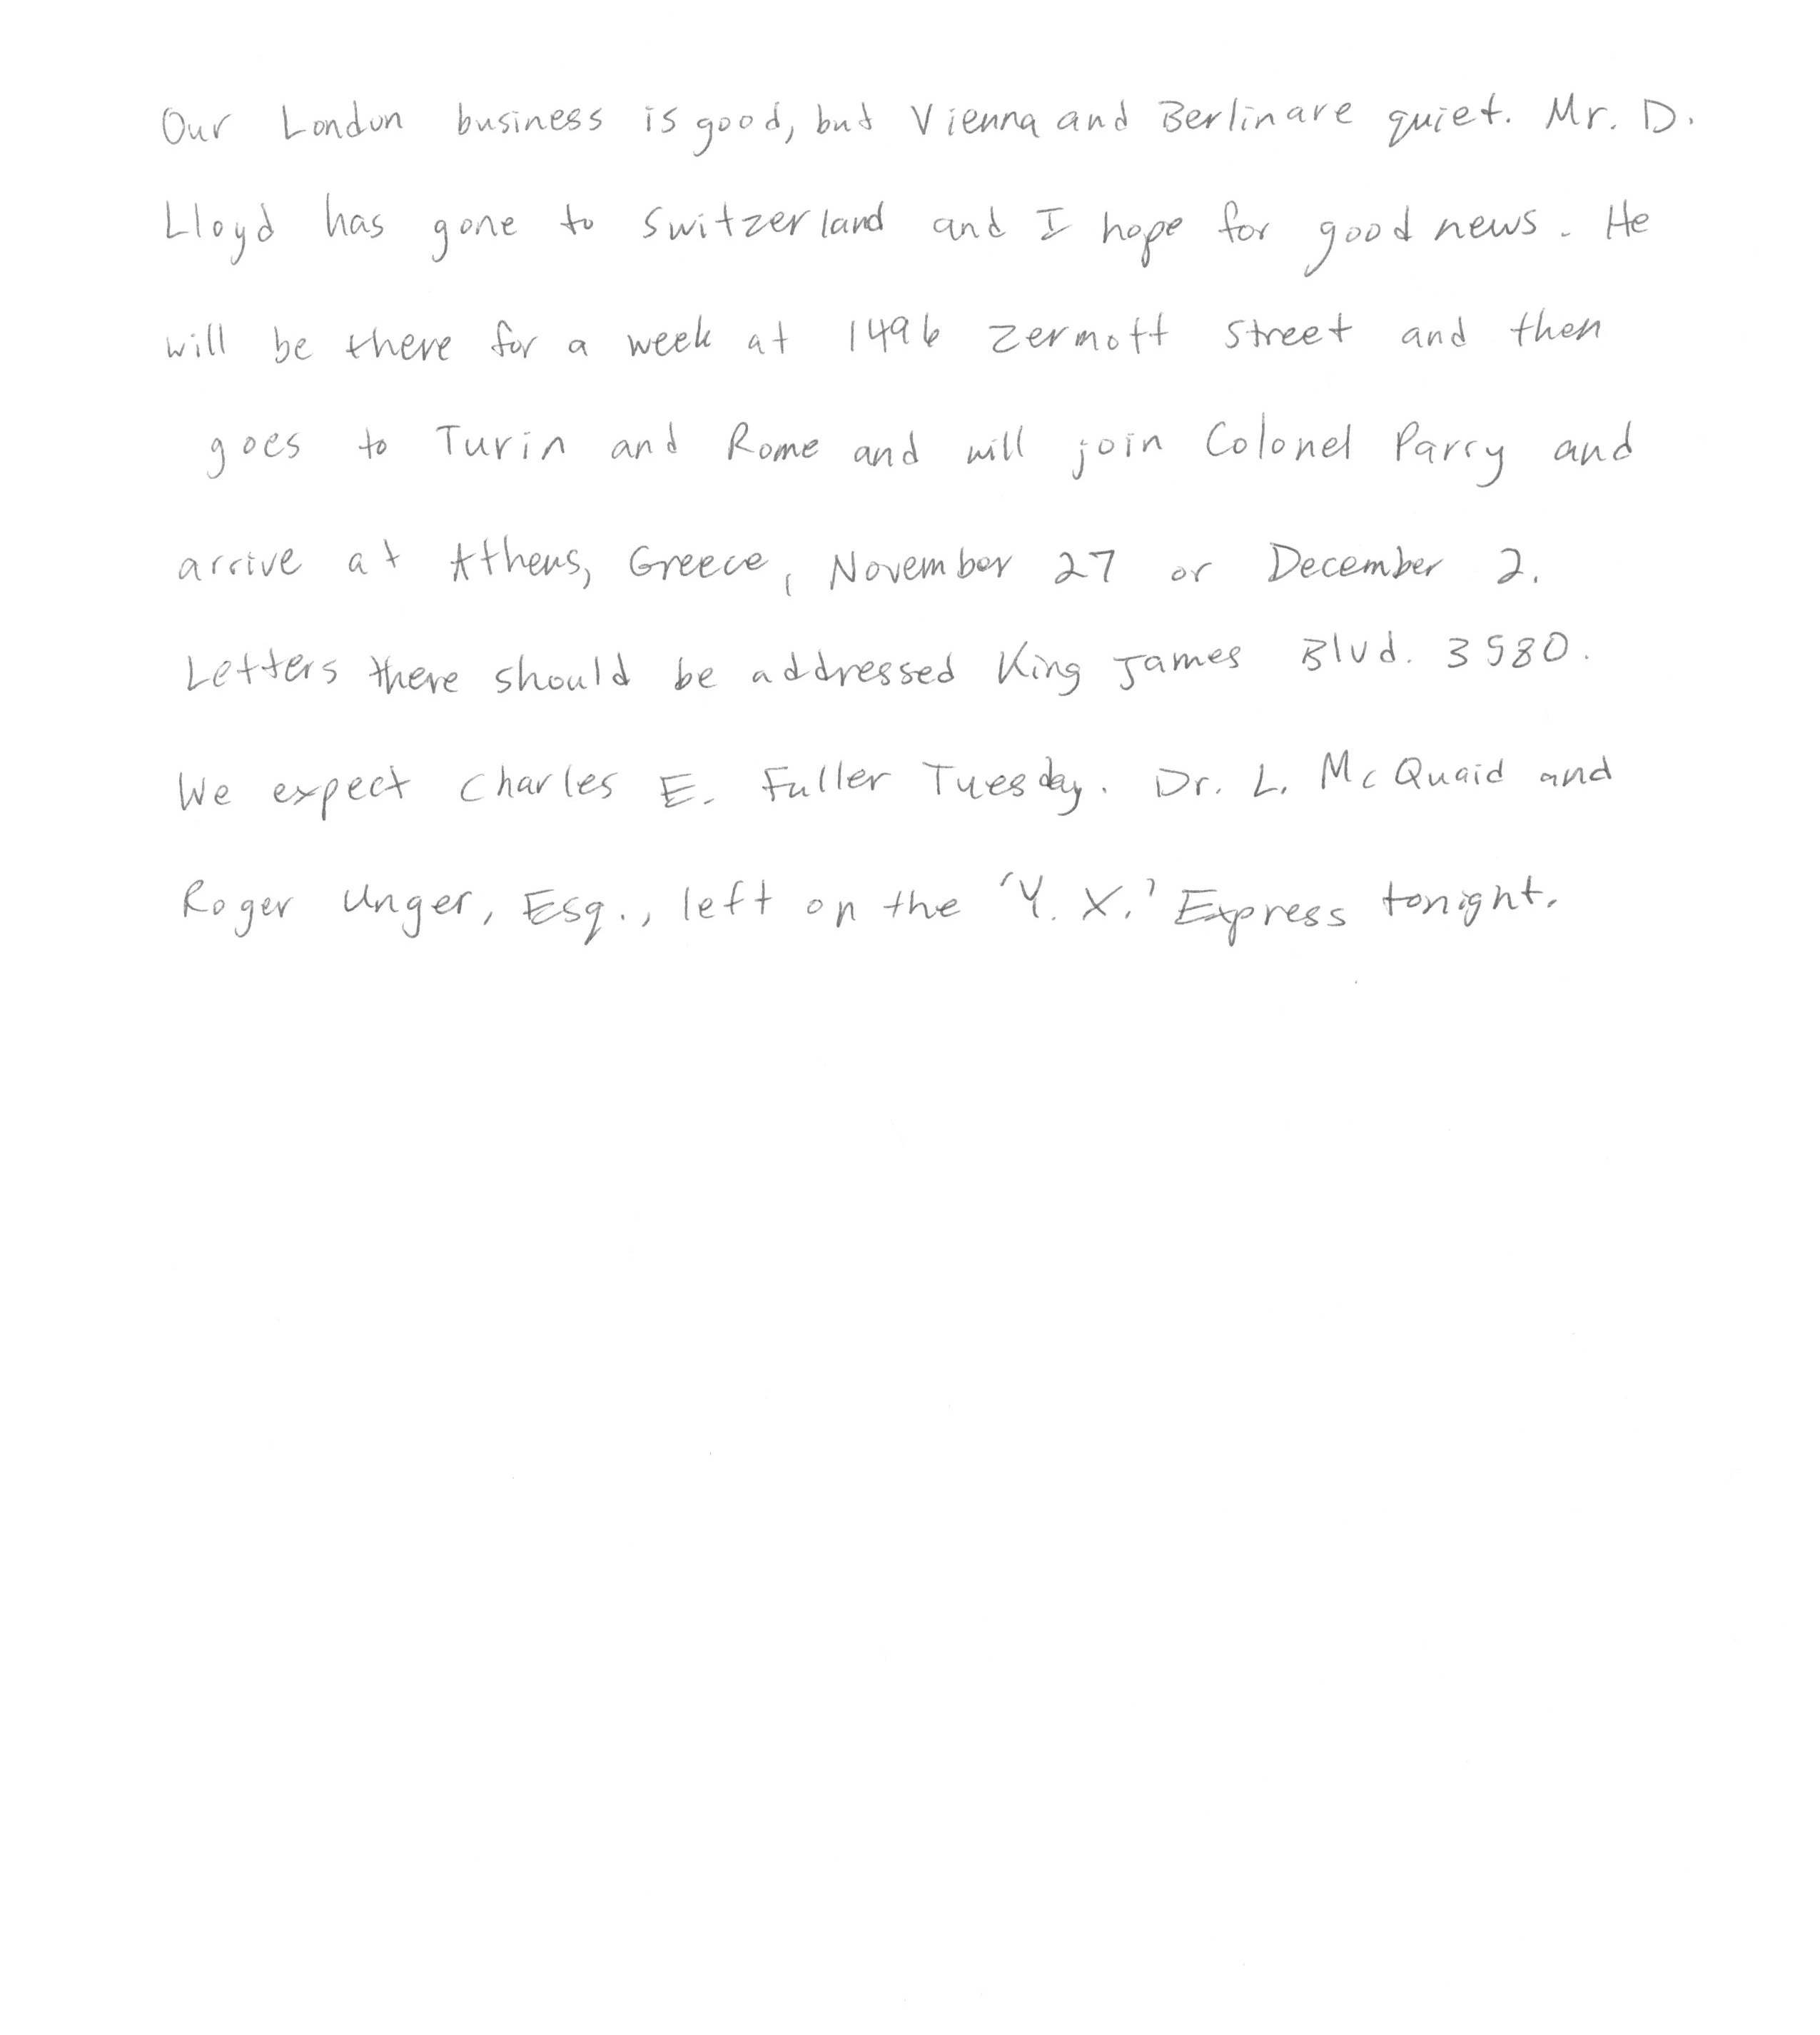 Our London business is good, but Vienna and Berlin are quiet. Mr. D.
Lloyd has gone to Switzerland and I hope for good news. He
will be there for a week at 1496 Zermott Street and then
goes to Turin and Rome and will join Colonel Parry and
arrive at Athens, Greece, November 27 or December 2.
Letters there should be addressed King James Blvd. 3580.
We expect Charles E. Fuller Tuesday. Dr. L. McQuaid and
Roger Unger, Esq., left on the 'Y. X.' Express tonight.